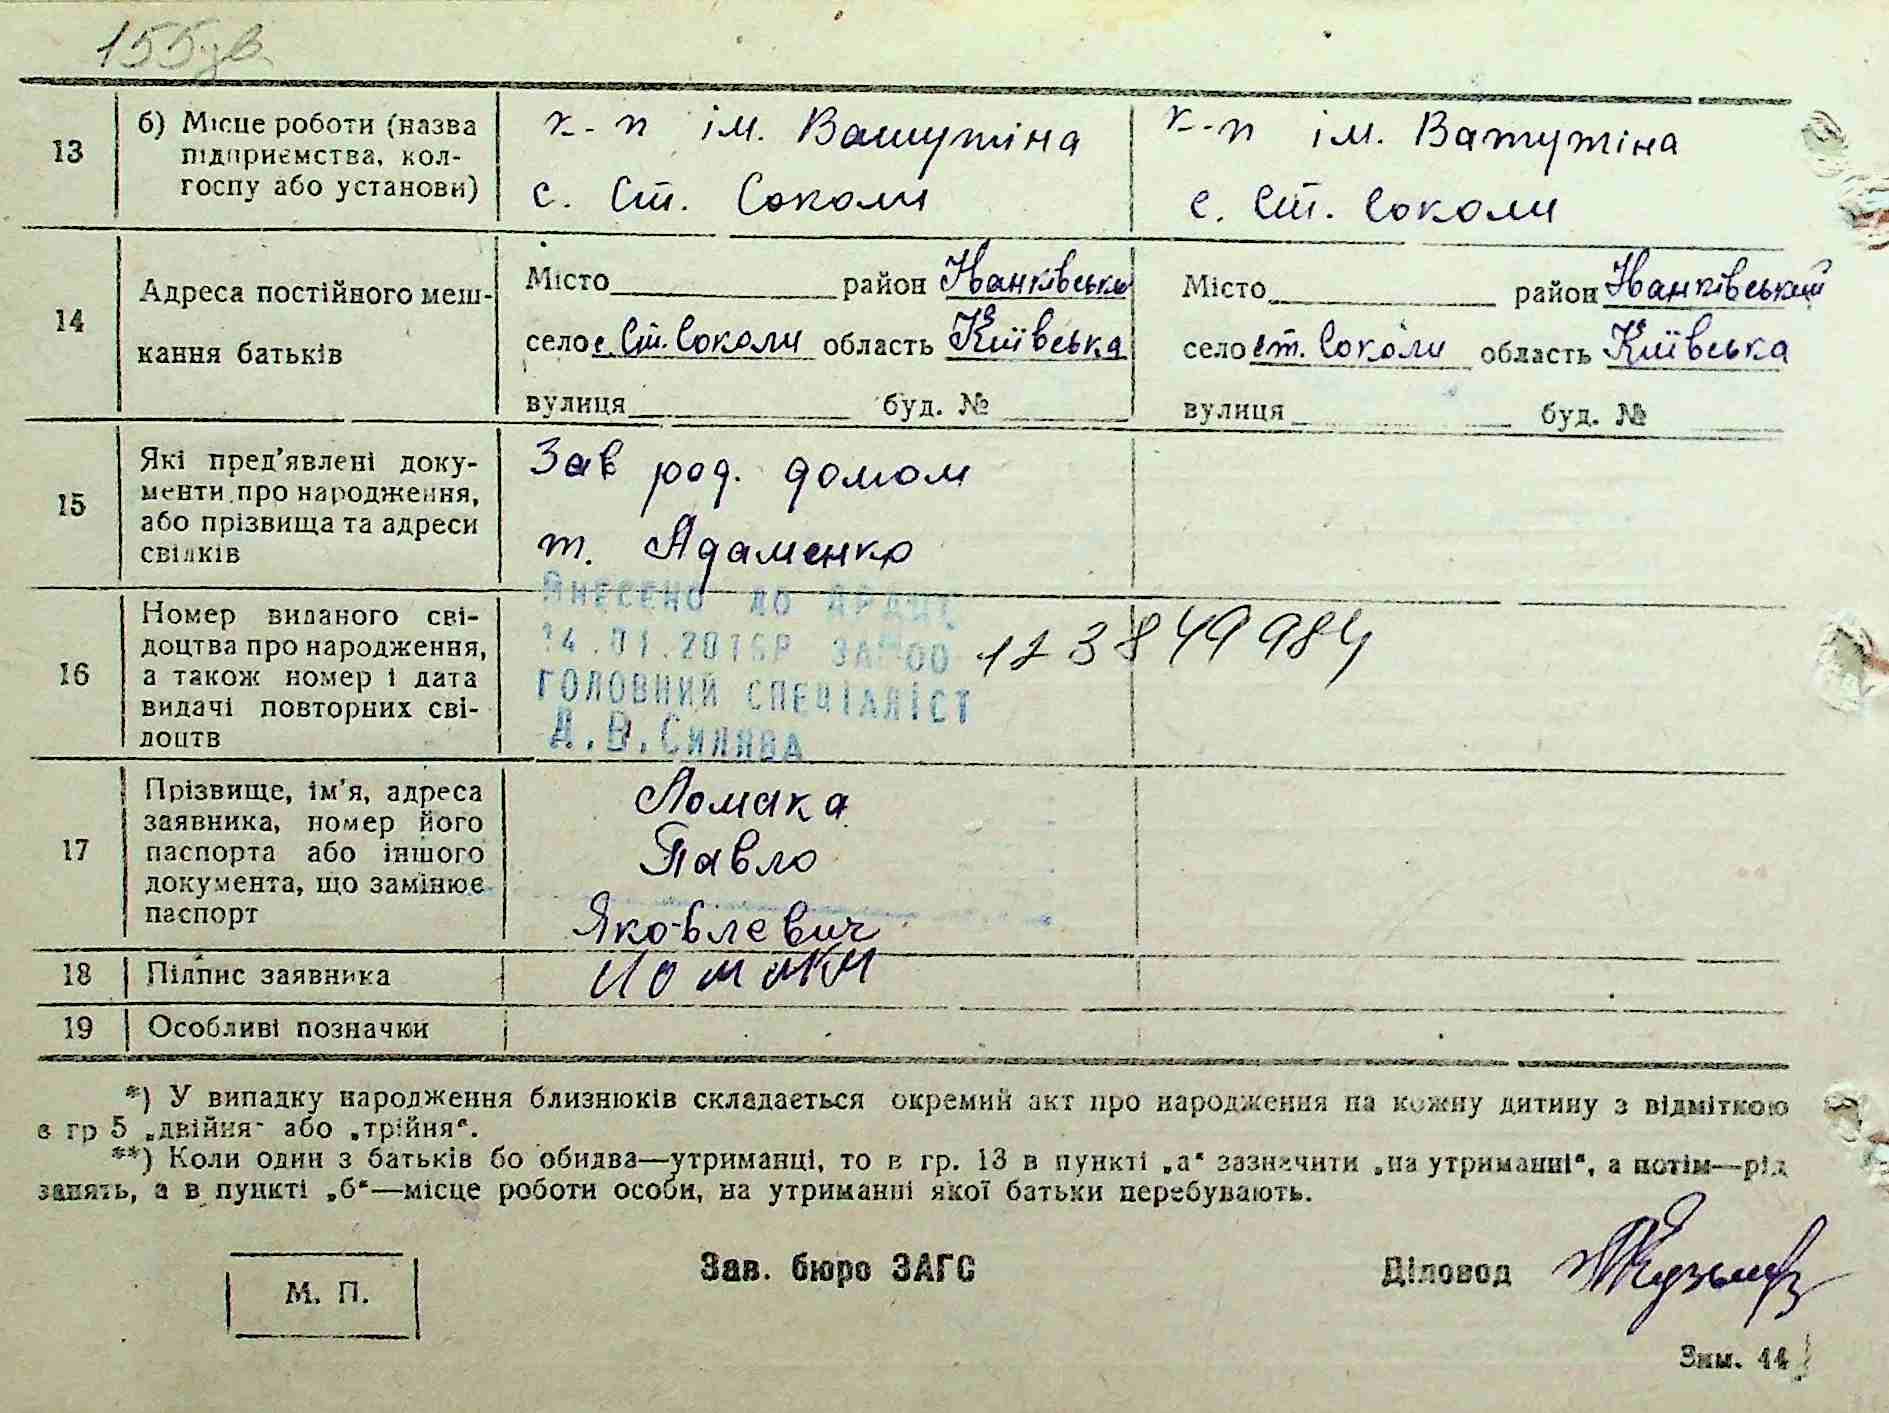 155 зв.
13
б) Місце роботи (назва підприємства, колгоспу або установи)
к-п ім. Ватутіна
с. Ст. Соколи
к-п ім. Ватутіна
с. Ст. Соколи
14
Адреса постійного мешкання батьків
Місто район Іванківськи
село с. Ст. Соколи область Київська
вулиця буд. №
Місто район Іванківський
село Ст. Соколи область Київська
вулиця буд. №
15
Які пред’явлені документи про народження, або прізвища та адреси свідків
Зав род. домом
т. Адаменко
16
Номер виданого свідоцтва про народження, а також номер і дата видачі повторних свідоцтв
Внесено до ДРАЦС
14.01.2016р за №00
головний спеціаліст
Д.В.Силява
123849984
17
Прізвище, ім’я, адреса заявника, номер його паспорта або іншого документа, що замінює паспорт
Ломака
Павло
Яковлевич
18
Підпис заявника
19
Особливі позначки
*) У випадку народження близнюків складається окремий акт про народження на кожну дитину з відміткою
в гр 5 „двійня“ або „трійня“.
**) Коли один з батьків бо обидва—утриманці, то в гр. 13 в пункті „а“ зазначити „на утриманні“, а потім—рід
занять, а в пункті „б“—місце роботи особи, на утриманні якої батьки перебувають.
М. П.
Зав. бюро ЗАГС
Діловод
Зам. 44